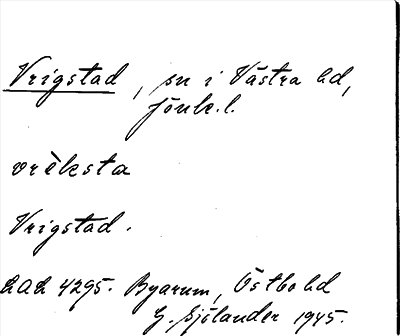 Vrigstad, sn i Västra hd,
Jönk. l.
vrèksta
Vrigstad.
LAL 4295. Byarum, Östbo hd
G. Sjölander 1945.